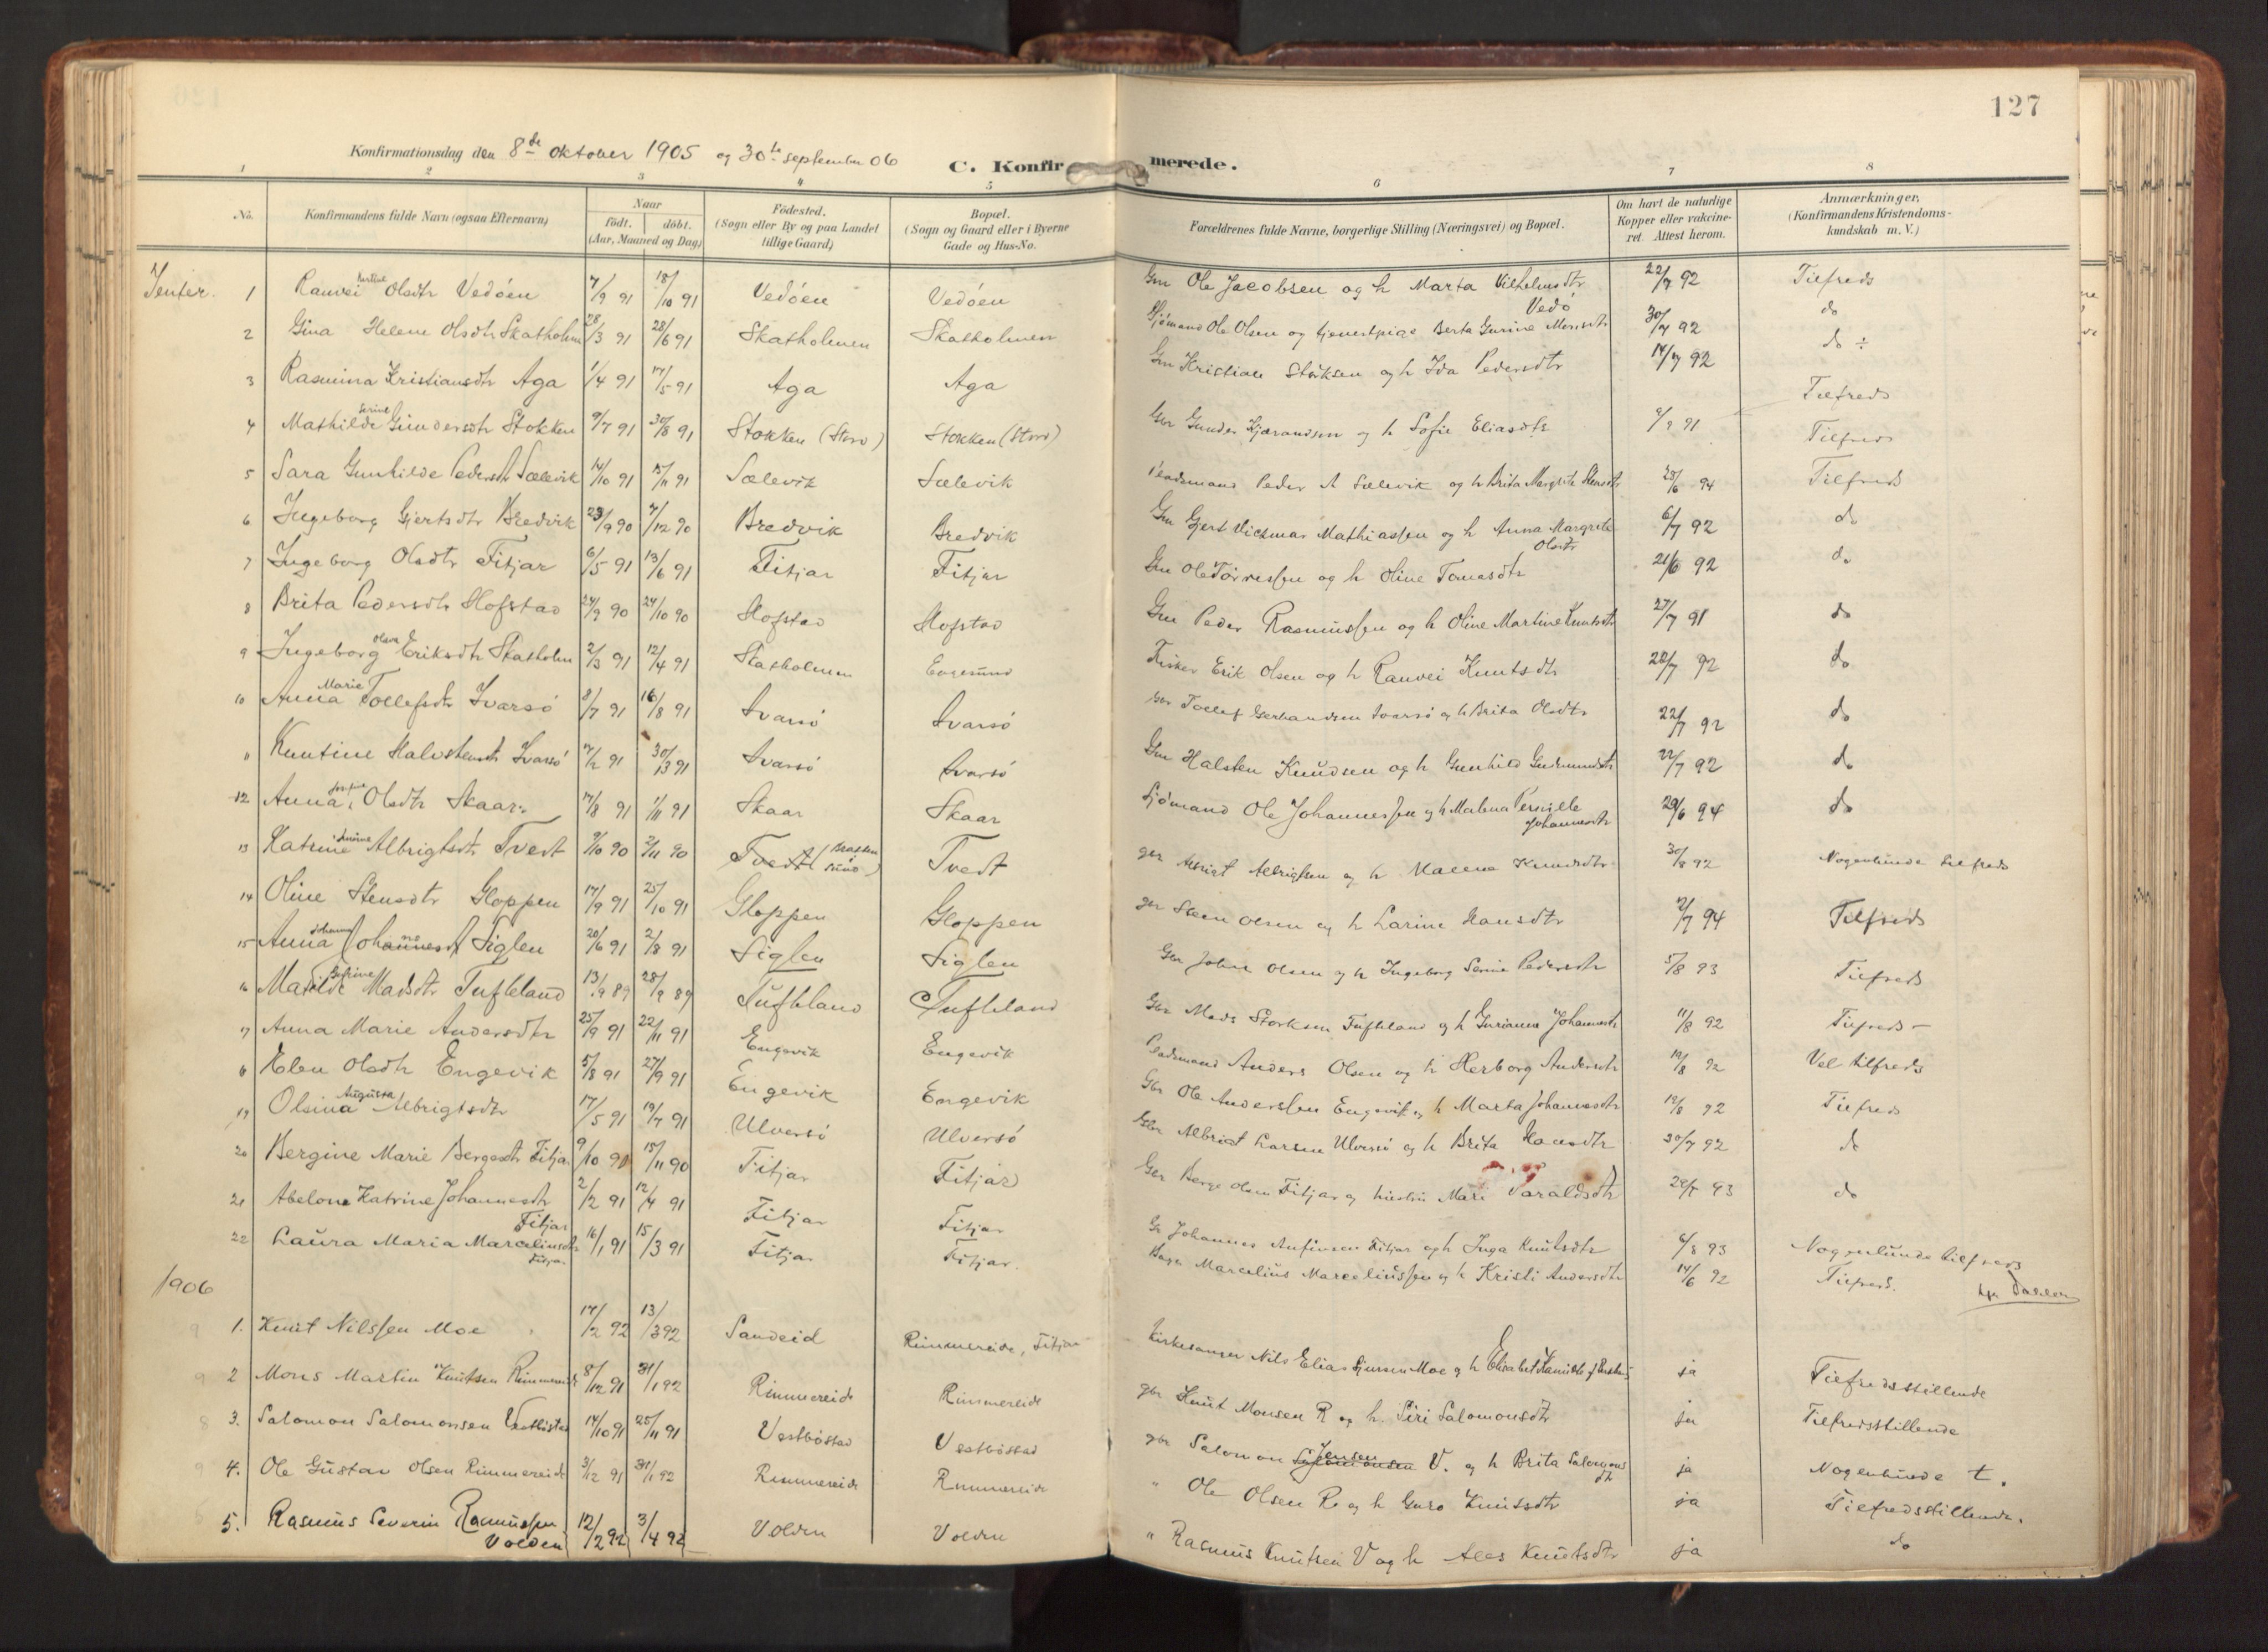 127
Konfirmationsdag den 8de oktober 1905 og 30te september 06
C. Konfirmerede.
1 2 3 4 5 6 7 8
No. Konfirmandens fulde Navn (ogsaa Efternavn) Naar födt. döbt. (Aar, Maaned og Dag) Födested. (Sogn eller By og paa Landet tillige Gaard) Bopæl. (Sogn og Gaard eller i Byerne Gade og Hus-No. Forældrenes fulde Navne, borgerlige Stilling (Næringsvei) og Bopæl. Om havt de naturlige Kopper eller vakcineret. Attest herom. Anmærkninger, (Konfirmandens Kristendomskundskab m. V.)
Jenter. 1 Ranvei Olsdtr Vedöen 7/9 91 18/10 91 Vedöen Vedöen Gm Ole Jacobsen og h Marta Vilhelmsdtr Vedö 22/7 92 Tilfreds
2 Gina Helene Olsdtr Skatholm 28/3 91 28/6 91 Skatholmen Skatholmen Sjömand Ole Olsen og tjenestpige Berta Gurine Monsdtr 30/7 92 do
3 Rasmina Kristiansdtr Aga 1/4 91 17/5 91 Aga Aga Gm Kristian Störksen og h Ida Pedersdtr 14/7 92 do ÷
4 Mathilde Serine Gundersdtr Stokken 9/7 91 30/8 91 Stokken (Stord) Stokken (Stord) Gbr Gunder Kjærandsen og h Sofie Eliasdtr 9/9 91 Tilfreds
Tilfreds
5 Sara Gunhilde Pedersdt Sælevik 14/10 91 15/11 91 Sælevik Sælevik Pladsmand Peder A Sælevik og h Brita Margrete 25/6 94 Tilfreds
6 Ingeborg Gjertsdtr Bredvik 23/9 90 7/12 90 Bredvik Bredvik Gm Gjert Dietmar Mathiassen og h Anna Margrete Olsdtr 6/7 92 do
7 Ingeborg Olsdtr Fitjar 6/5 91 13/6 91 Fitjar Fitjar Gm Ole Törressen og h Oline Tomasdtr 21/6 92 do
8 Brita Pedersdtr Hofstad 24/9 90 24/10 90 Hofstad Hofstad Gm Peder Rasmussen og h Oline Martine Knutsdtr 27/7 91 do
9 Ingeborg Olava Eriksdtr Skatholm 2/3 91 12/4 91 Skatholmen Engesund Fisker Erik Olsen og h Ranvei Knutsdtr 28/7 92 do
10 Anna Marie Tollefsdtr Ivarsö 8/7 91 16/8 91 Ivarsö Ivarsö Gbr Tollef Gerhardsen Ivarsö og h Brita Olsdtr 22/7 92 do
11 Knutine Halvstensdt Ivarsö 7/2 91 30/3 91 Ivarsö Ivarsö Gm Halsten Knudsen og h Gunhild Gudmundsdtr 22/7 92 do
12 Anna Josefine Olsdtr Skaar 17/8 91 1/11 91 Skaar Skaar Sjömand Ole Johannessen og h Malena Pernille Johannesdtr 29/6 94 do
13 Katrine Albrigtsdt Tvedt 9/10 90 2/11 90 Tvedt Tvedt gbr Albrigt Albrigtsen og h Malena Knudsdtr 30/8 92 Nogenlunde tilfreds
14 Oline Stensdtr Gloppen 17/9 91 25/10 91 Gloppen Gloppen gbr Steen Olsen og h Larine Hansdtr 2/7 94 Tilfreds
15 Anna Johanna Johannesdt Siglen 20/6 91 2/8 91 Siglen Siglen Gbr Johan Olsen og h Ingeborg Serine Pedersdtr 5/8 93 Tilfreds
16 Matilde Gefrine Madsdtr Tufteland 13/9 89 28/9 89 Tufteland Tufteland Gbr Mads Storksen Tufteland og h Gurianna Johannesdt 11/8 92 Tilfreds –
17 Anna Marie Andersdtr 25/9 91 22/11 91 Engevik Engevik Pladsmand Anders Olsen og h Herborg Andersdtr 19/8 92 Vel tilfreds
18 Elen Olsdtr Engevik 5/8 91 27/9 91 Engevik Engevik Gbr Ole Anderssen Engevik og h Marta Johannesdtr 12/8 92 Tilfreds
19 Olsina Augusta Albrigtsdtr 17/5 91 19/7 91 Ulversö Ulversö Gbr Albrigt Larsen Ulversö og h Brita Hansdtr 30/7 92 do
20 Bergine Marie Bergesdtr Fitjar 9/10 90 15/11 90 Fitjar Fitjar Gbr Berge Olsen Fitjar og hustru Mari Varaldsdtr 29/7 93 do
21 Abelone Katrine Johannesdtr Fitjar 2/2 91 12/4 91 Fitjar Fitjar Gr Johannes Anfinsen Fitjar og h Inga Knutsdtr 6/8 93 Nogenlunde tilfreds
22 Laura Maria Marceliusdtr Fitjar 16/1 91 15/3 91 Fitjar Fitjar. Marcelius Marceliussen og h Kristi Andersdtr 14/6 92 Tilfreds.
1906
1. Knut Nilssen Moe 17/2 92 13/3 92 Sandeid Rimmereide, Fitjar Kirkesanger Nils Elias Sjursen Moe og h Elisabet ja Tilfredsstillende
2 Mons Martin Knutsen Rimmereide 8/12 91 31/1 92 Rimmereide Rimmereide gbr Knut Monsen R og h. Siri Salomonsdtr ja Tilfredsstillende
3. Salomon Salomonsen Vestböstad 14/10 91 25/11 91 Vestböstad Vestböstad gbr Salomon Jensen V. og h Brita Salomonsdtr ja Nogenlunde t.
4. Ole Gustav Olsen Rimmereide 3/12 91 31/1 92 Rimmereide Rimmereide " Ole Olsen R og h Guro Knutsdtr ja Tilfredsstillende.
5. Rasmus Severin Rasmussen Volden 12/2 92 3/4 92 Volden Volden " Rasmus Knutsen V og h Ales Knutsdtr ja do